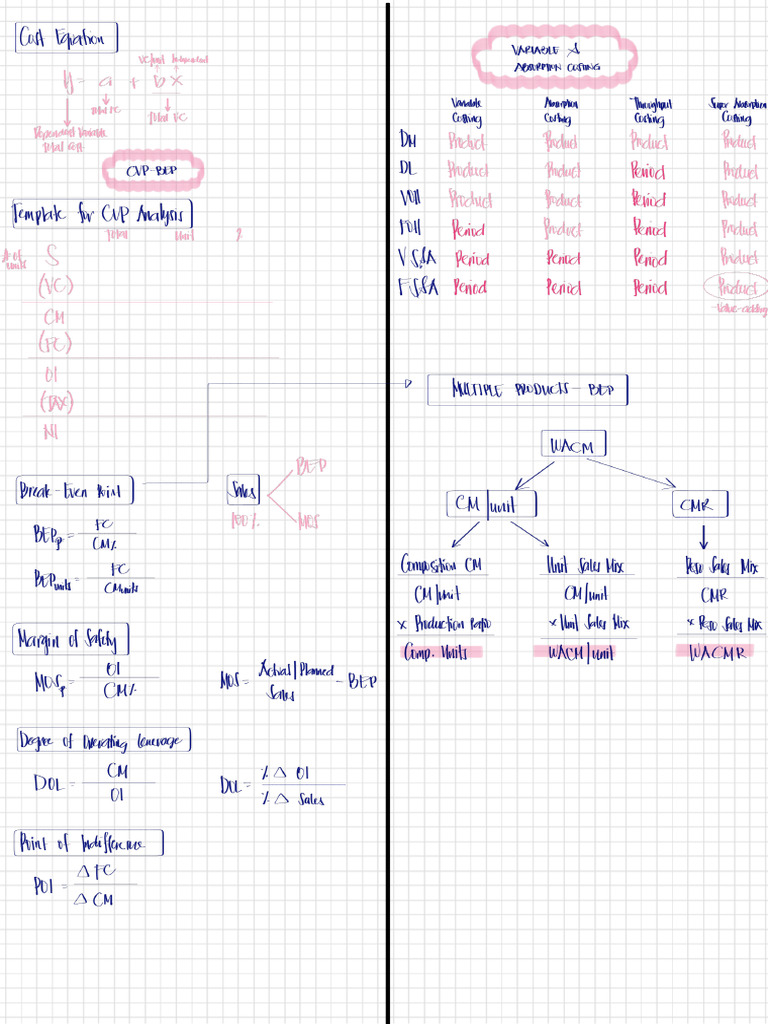 Cost Equation
VC/unit Independent
y = a + bx
Total FC
Total VC
Dependent Variable
Total Cost
CVP-BEP
Template for CVP Analysis
Total Unit %
# of units
S
(VC)
CM
(FC)
OI
(TAX)
NI
Break-Even Point
BEP₱ = FC / CM%
BEPunits = FC / CMunits
Sales
100%
BEP
MOS
Margin of Safety
MOS₱ = OI / CM%
MOS = Actual/Planned Sales - BEP
Degree of Operating Leverage
DOL = CM / OI
DOL = % Δ OI / % Δ Sales
Point of Indifference
POI = Δ FC / Δ CM
VARIABLE &
ABSORPTION COSTING
Variable Costing Absorption Costing Throughput Costing Super Absorption Costing
DM Product Product Product Product
DL Product Product Period Product
VOH Product Product Period Product
FOH Period Product Period Product
VS&A Period Period Period Product
FS&A Period Period Period Product
-Value-adding
MULTIPLE PRODUCTS - BEP
WACM
CM/unit
CMR
Composition CM
CM/unit
x Production Ratio
Comp. Units
Unit Sales Mix
CM/unit
x Unit Sales Mix
WACM/unit
Peso Sales Mix
CMR
x Peso Sales Mix
WACMR